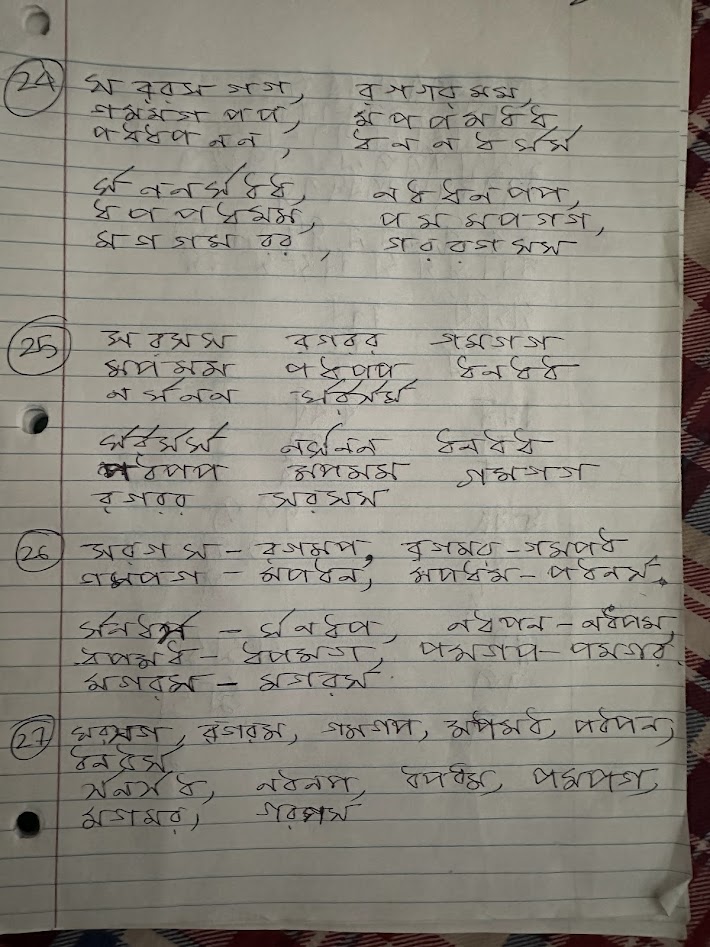 24 স র র স গ গ, র গ গ র ম ম,
গ ম ম গ প প, ম প প ম ধ ধ,
প ধ ধ প ন ন, ধ ন ন ধ র্স র্স
র্স ন ন র্স ধ ধ, ন ধ ধ ন প প,
ধ প প ধ ম ম, প ম ম প গ গ,
ম গ গ ম র র, গ র র গ স স
25 স র স স র গ র র গ ম গ গ
ম প ম ম প ধ প প ধ ন ধ ধ
ন র্স ন ন র্স র্র র্স র্স
র্স র্র র্স র্স ন র্স ন ন ধ ন ধ ধ
প ধ প প ম প ম ম গ ম গ গ
র গ র র স র স স
26 স র গ স – র গ ম প, র গ ম র – গ ম প ধ
গ ম প গ – ম প ধ ন, ম প ধ ম – প ধ ন র্স
র্স ন ধ – র্স ন ধ প, ন ধ প ন – ন ধ প ম,
ধ প ম ধ – ধ প ম গ, প ম গ প – প ম গ র,
ম গ র ম – ম গ র স
27 স র স গ, র গ র ম, গ ম গ প, ম প ম ধ, প ধ প ন,
ধ ন ধ র্স
র্স ন র্স ধ, ন ধ ন প, ধ প ধ ম, প ম প গ,
ম গ ম র, গ র স